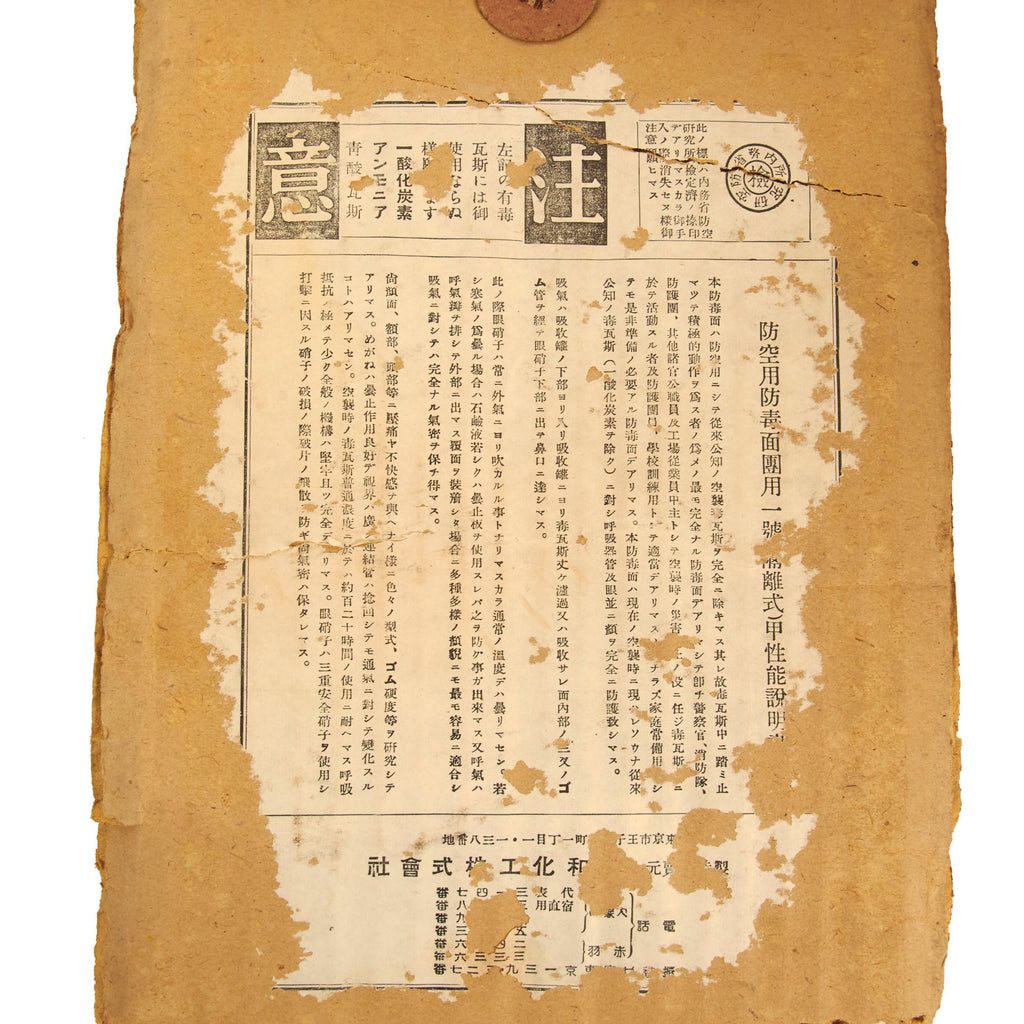 注意
左記の有毒
瓦斯には御
使用ならぬ
ます
一酸化炭素
アンモニア
青酸瓦斯
此ノ標ハ內務省防空
研究所檢定濟ノ捺印
デアリマスカラ御手
入ノ際消失セヌ樣御
注意願ヒマス
檢
防空用防毒面團用一號 離式)甲性能說明
本防毒面ハ防空用ニシテ從來公知ノ空襲毒瓦斯ヲ完全ニ除キマス其レ故毒瓦斯中ニ踏ミ止
マツテ積極的動作ヲ爲ス者ノ爲メノ最モ完全ナル防毒面デアリマシテ卽チ警察官、消防隊、
防護團、其他諸官公職員及工場從業員中主トシテ空襲時ノ災害 ノ役ニ任ジ毒瓦斯 ニ
於テ活動スル者及防護團員、學校訓練用トシテ適當デアリマス ナラズ家庭常備用 シ
テモ是非準備ノ必要アル防毒面デアリマス。本防毒面ハ現在ノ空襲時ニ現ハレソウナ從來
公知ノ毒瓦斯(一酸化炭素ヲ除ク)ニ對シ呼吸器管及眼並ニ顏ヲ完全ニ防護致シマス。
吸氣ハ吸收罐ノ下部ヨリ入リ吸收罐ニヨリ毒瓦斯丈ケ濾過又ハ吸收サレ面內部ノ三叉ノゴ
ム管ヲ經テ眼硝子下部ニ出テ鼻口ニ達シマス。
此ノ際眼硝子ハ常ニ外氣ニヨリ吹カルル事トナリマスカラ通常ノ溫度デハ曇リマセン。若
シ寒氣ノ爲曇ル場合ハ石鹼液若シクハ曇止液ヲ使用スレバ之ヲ防ケ事ガ出來マス又呼氣ハ
呼氣瓣ヲ排シテ外部ニ出マス覆面ヲ裝着シタ場合ニ多種多樣ノ顏貌ニモ最モ容易ニ適合シ
吸氣ニ對シテハ完全ナル氣密ヲ保チ得マス。
尙頭面、額部、頭部等ニ壓痛ヤ不快感ヲ與ヘナイ樣ニ色々ノ型式、ゴム硬度等ヲ研究シテ
アリマス。めがねハ曇止作用良好デ視界ハ廣ク連結管ハ捻回シテモ通氣ニ對シテ變化スル
コトハアリマセン。空襲時ノ毒瓦斯普通濃度ニ於テハ約百二十時間ノ使用ニ耐ヘマス呼吸
抵抗ハ極メテ少ク全般ノ機構ハ堅牢且ツ完全デアリマス。眼硝子ハ三重安全硝子ヲ使用シ
打擊ニ因スル硝子ノ破損ノ際破片ノ飛散ヲ防ギ尙氣密ハ保タレマス。
東京市王子 町一丁目一・一三八番地
製 元 和化工株式會社
電話
赤羽
代表
宿直用
東京一三九 二七番